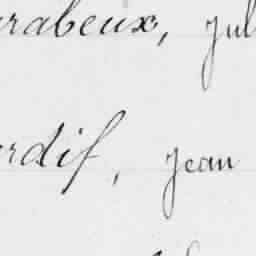 arabeux, jul
ordif, jean